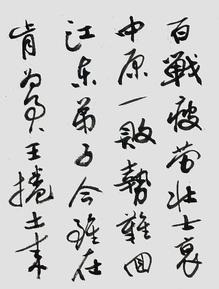 百戰疲勞壯士哀
中原一敗勢難回
江東弟子今雖在
肯為君王捲土來